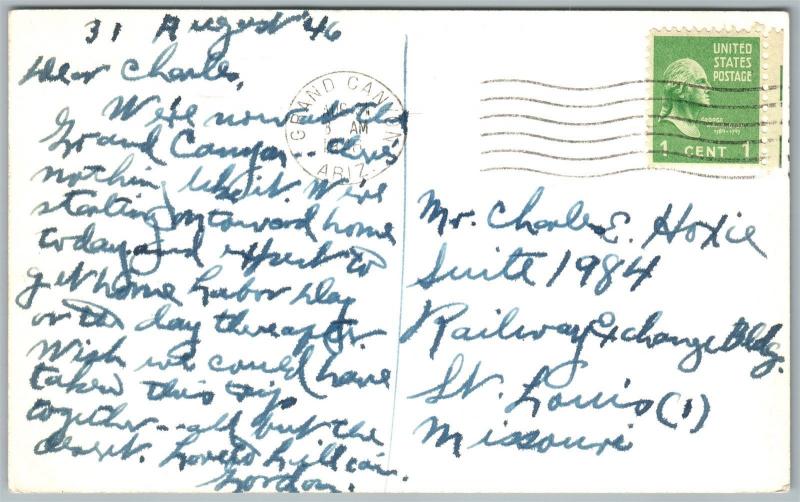 31 August '46
Dear Charles,
We're now at the
Grand Canyon -- there's
nothing like it. We're
starting on toward home
today and expect to
get home Labor Day
or the day thereafter.
Wish we could have
taken this trip
together -- all but the
desert. Love to Lillian.
Gordon.
GRAND CANYON
8 AM
ARIZ.
UNITED
STATES
POSTAGE
GEORGE
WASHINGTON
1789-1797
1 CENT 1
Mr. Charles E. Hoxie
Suite 1984
Railway Exchange Bldg.
St. Louis (1)
Missouri